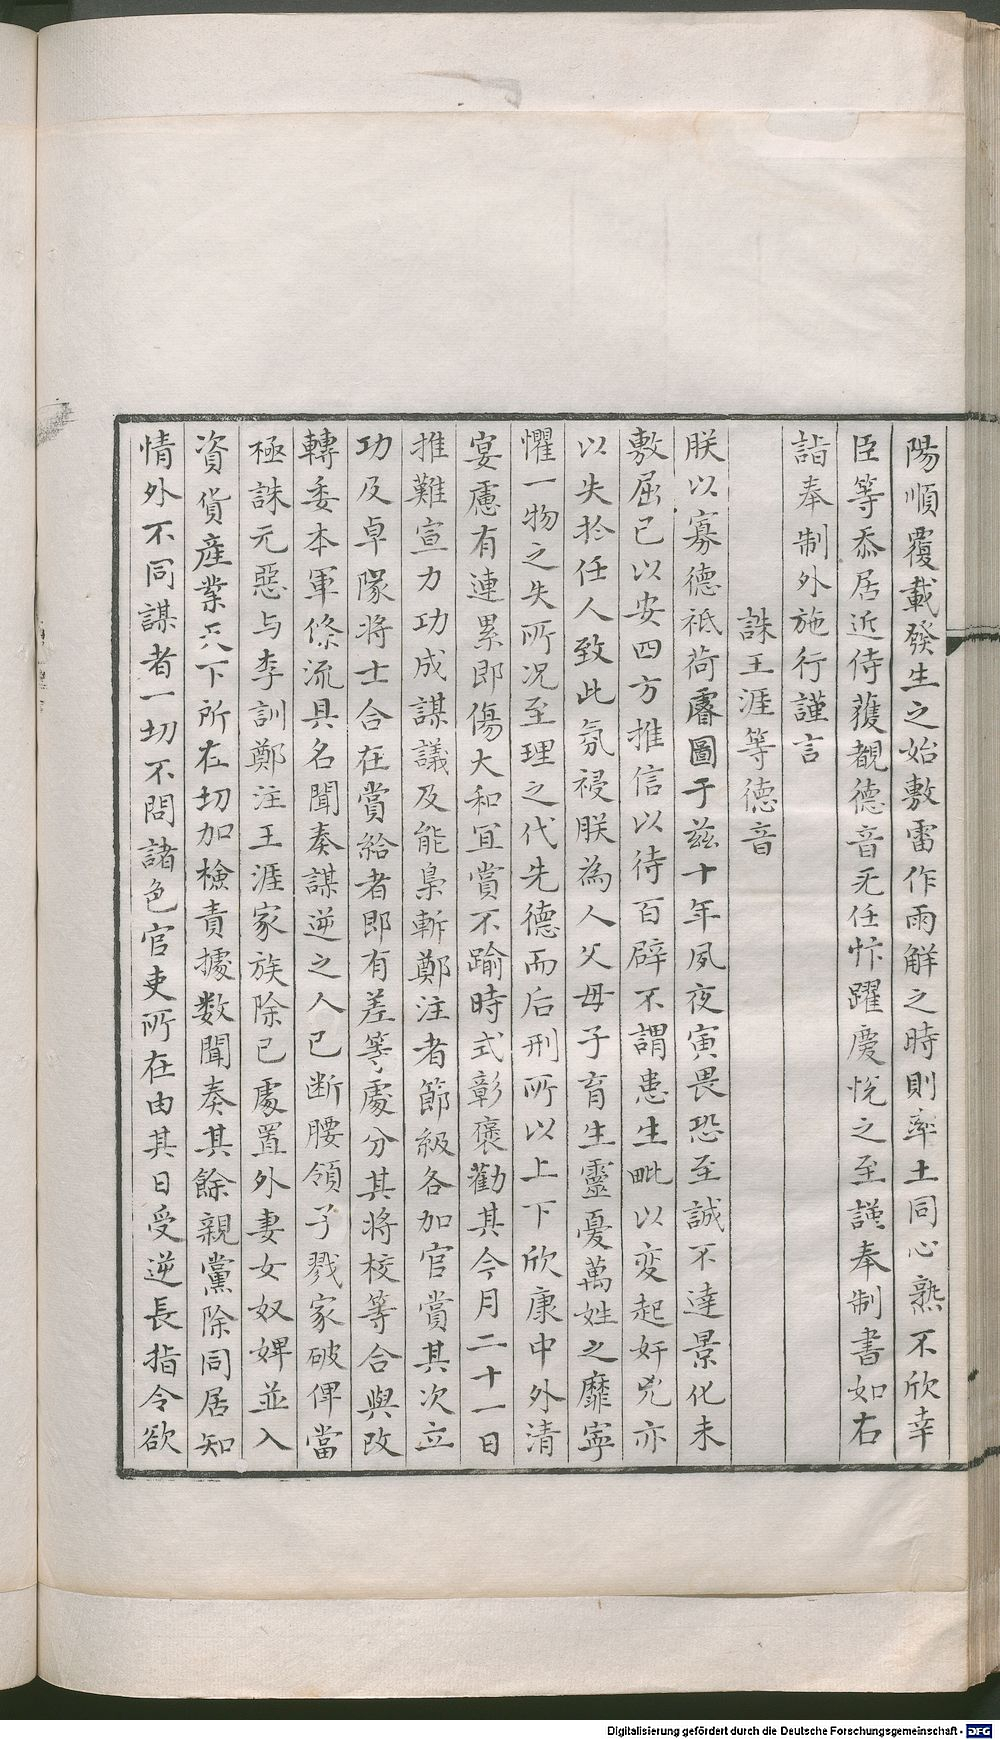 陽順覆載發生之始敷雷作雨解之時則率土同心熟不欣幸
臣等忝居近侍獲覩德音无任忭躍慶悅之至謹奉制書如右
詣奉制外施行謹言
誅王涯等德音
朕以寡德祗荷睿圖于茲十年夙夜寅畏恐至誠不達景化未
敷屈已以安四方推信以待百辟不謂患生毗以变起奸兇亦
以失於任人致此氛祲朕為人父母子育生靈憂萬姓之靡寧
懼一物之失所况至理之代先德而后刑所以上下欣康中外清
宴慮有連累即傷大和宜賞不踰時式彰褒勸其今月二十一日
推難宣力功成謀議及能梟斬鄭注者節級各加官賞其次立
功及卓隊將士合在賞給者即有差等處分其將校等合與改
轉委本軍條流具名聞奏謀逆之人已断腰領子戮家破俾當
極誅元惡与李訓鄭注王涯家族除已處置外妻女奴婢並入
資貨產業天下所在切加檢責據数聞奏其餘親黨除同居知
情外不同謀者一切不問諸色官吏所在由其日受逆長指令欲
Digitalisierung gefördert durch die Deutsche Forschungsgemeinschaft - DFG